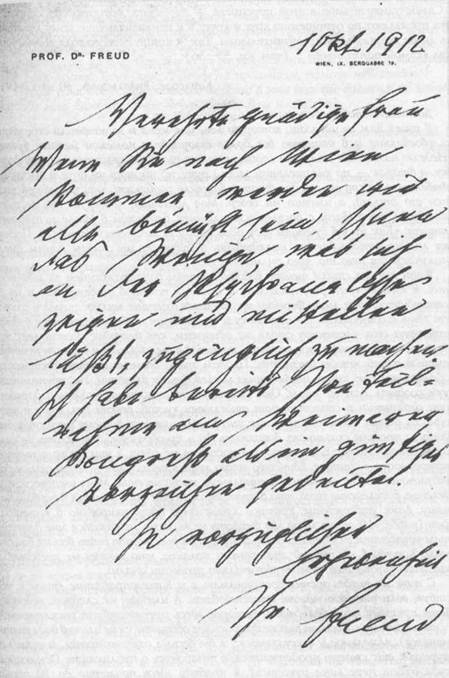 PROF. DR. FREUD
1 Okt 1912
WIEN, IX. BERGGASSE 19.
Verehrte gnädige Frau
Wenn Sie nach Wien
kommen, werden wir
alle bemüht sein, Ihnen
das Wenige, was sich
an der Psychoanalyse
zeigen und mitteilen
läßt, zugänglich zu machen
Ich habe bereits Ihre Teil-
nahme am Weimarer
Kongreß als ein günstiges
Vorzeichen gedeutet.
In vorzüglicher
Ergebenheit
Ihr Freud